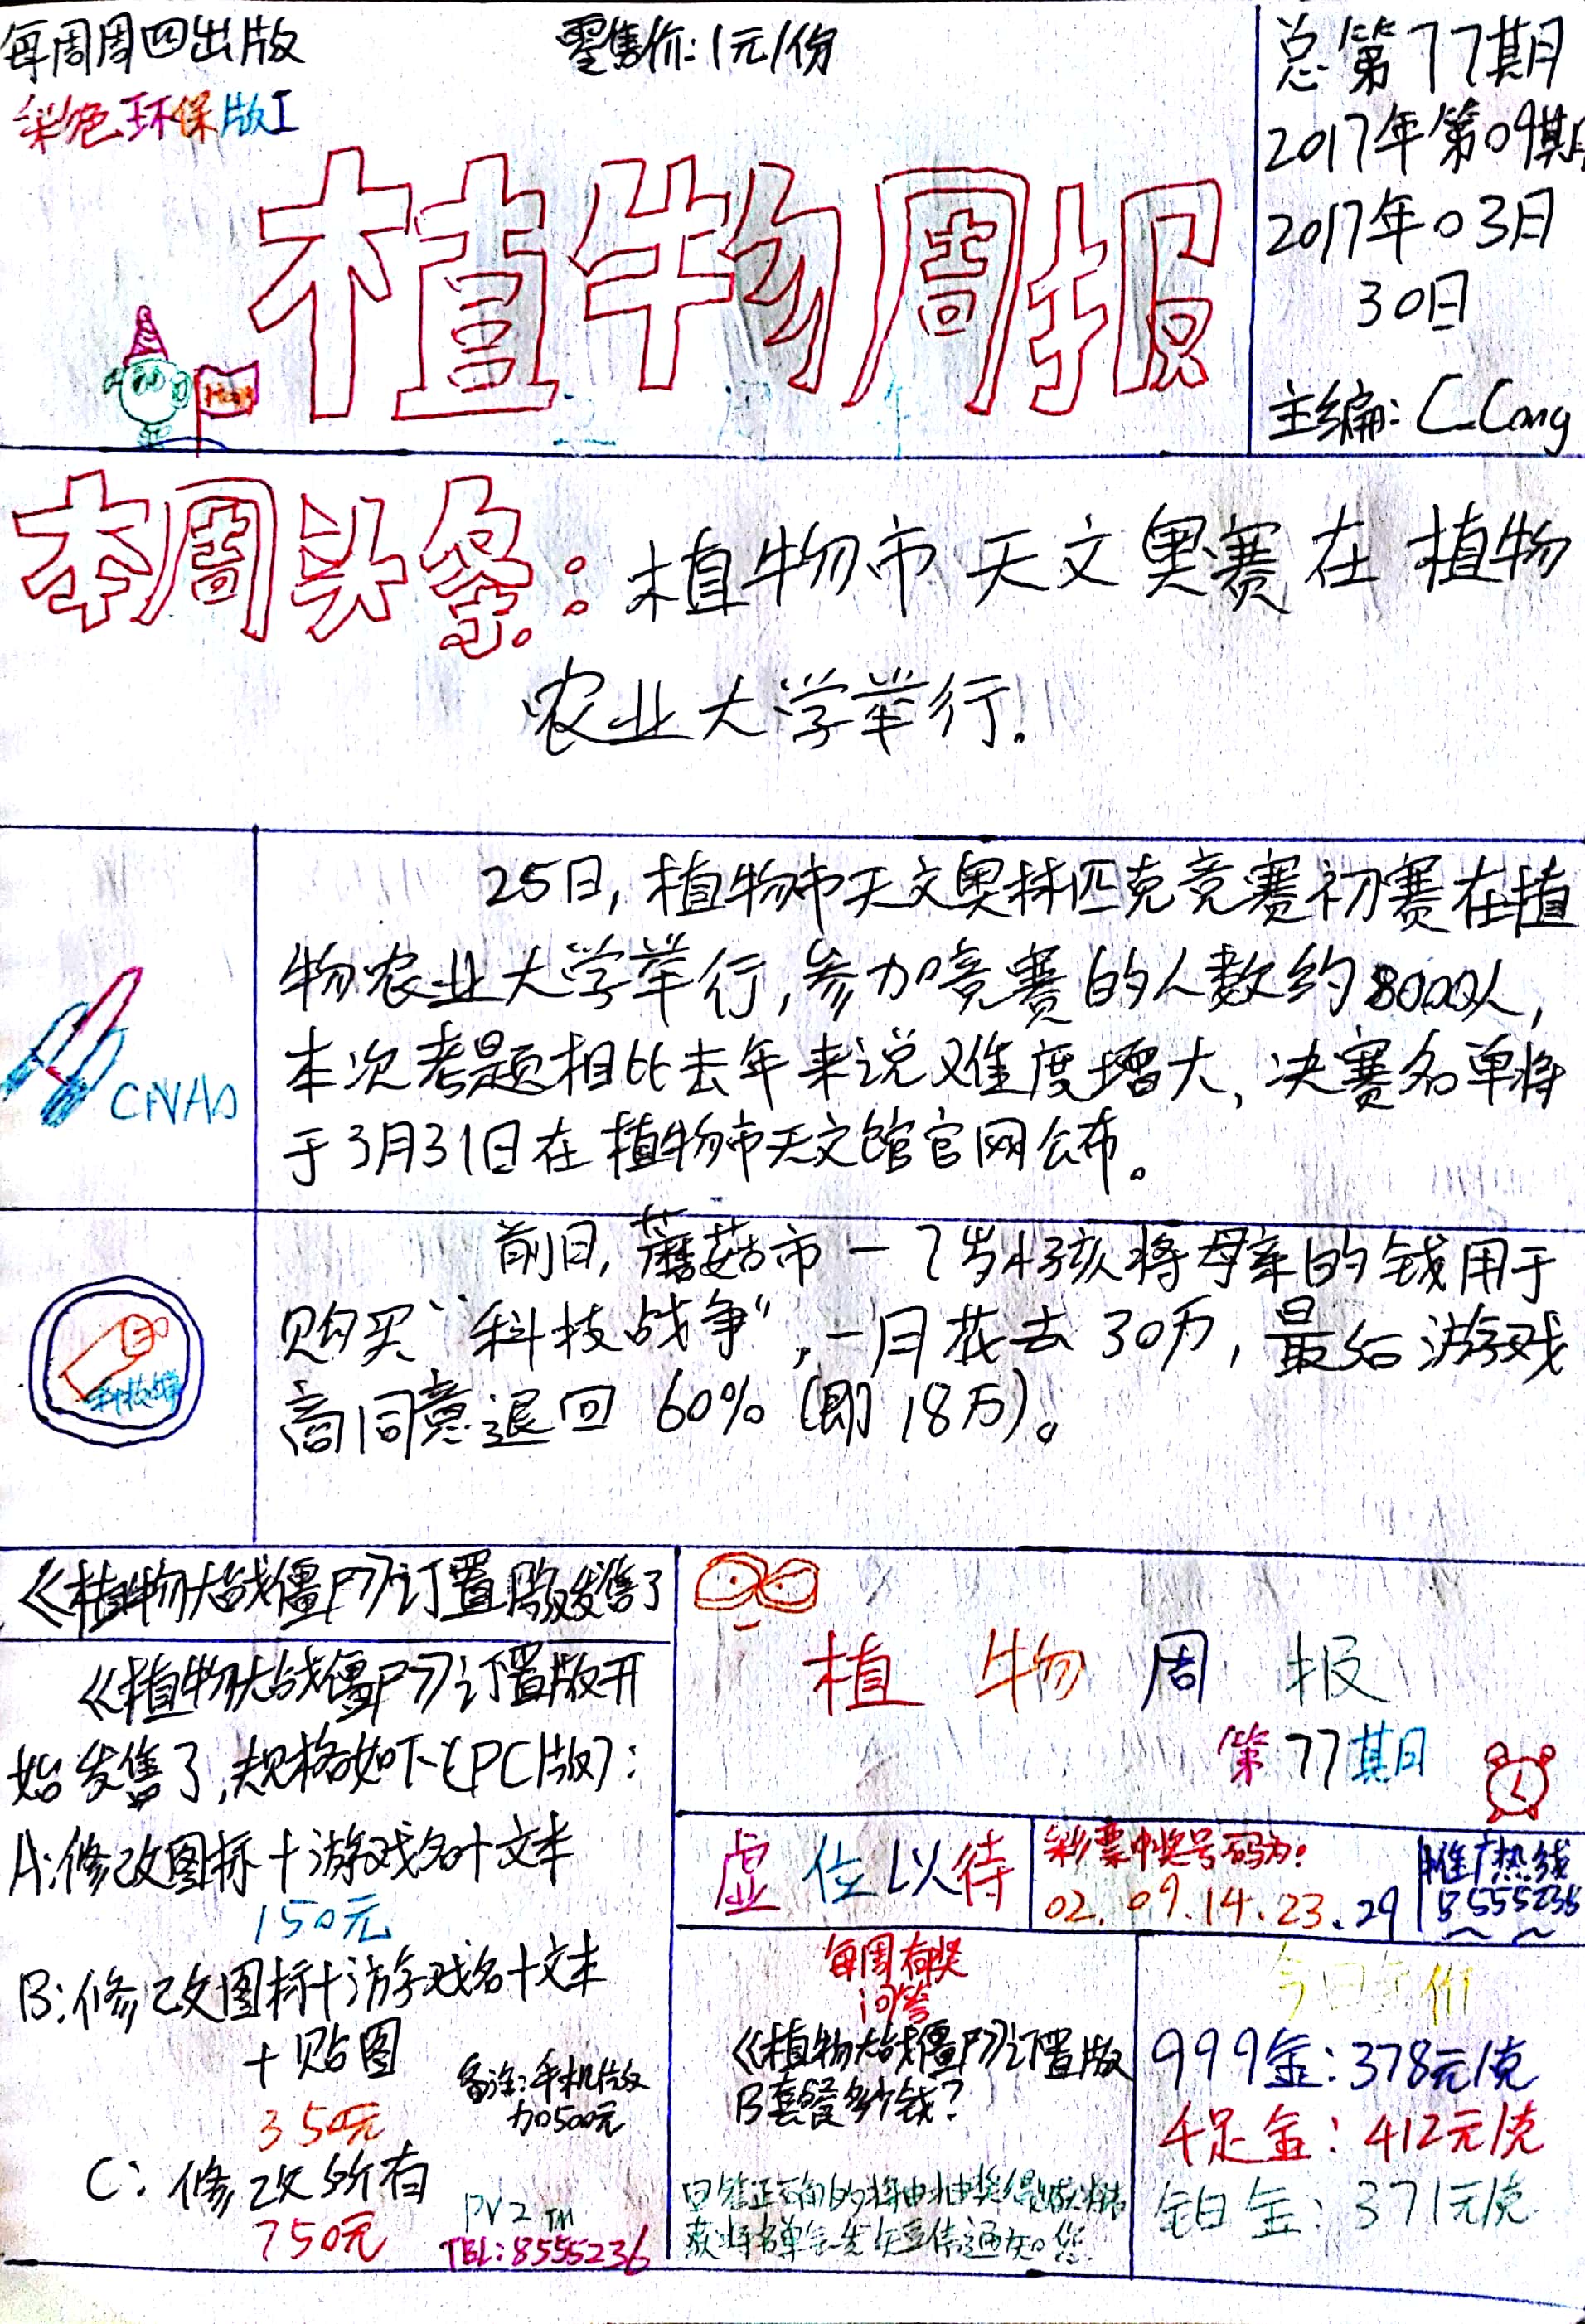 每周周四出版
零售价:1元/份
彩色环保版I
总第77期
2017年第09期
2017年03月
30日
主编:
植物周报
本周头条:植物市天文奥赛在植物
农业大学举行.
25日,植物市天文奥林匹克竞赛初赛在植
物农业大学举行,参加竞赛的人数约8000人,
本次考题相比去年来说难度增大,决赛名单将
于3月31日在植物市天文馆官网公布。
CNAO
前日,蘑菇市一7岁小孩将母亲的钱用于
购买“科技战争”,一月花去30万,最后游戏
商同意退回60%(即18万)。
科技战争
《植物大战僵尸》订置版发售了
《植物大战僵尸》订置版开
始发售了,规格如下(PC版):
A:修改图标+游戏名+文本
150元
B:修改图标+游戏名+文本
+贴图
350元
备注:手机版
加500元
C:修改所有
750元
PVZ TM
TEL:8555236
植物周报
第77期
虚位以待
彩票中奖号码为:
02.09.14.23.29
推广热线
8555236
每周有奖
问答
《植物大战僵尸》订置版
B套餐多少钱?
今日金价
999金:378元/克
千足金:412元/克
铂金:371元/克